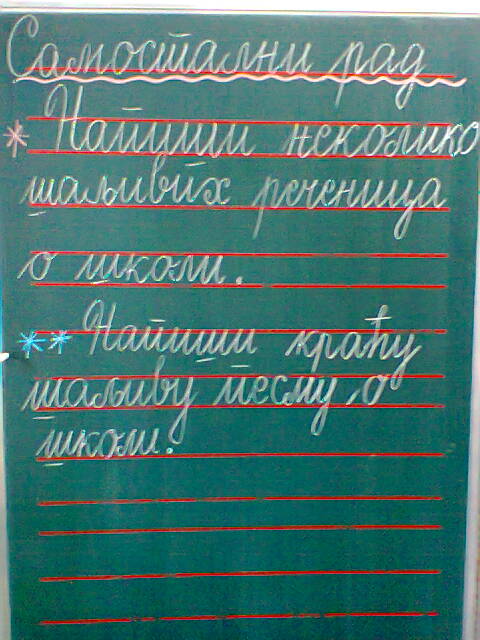 Самостални рад
* Напиши неколико
шаљивих реченица
о школи.
** Напиши краћу
шаљиву песму о
школи.